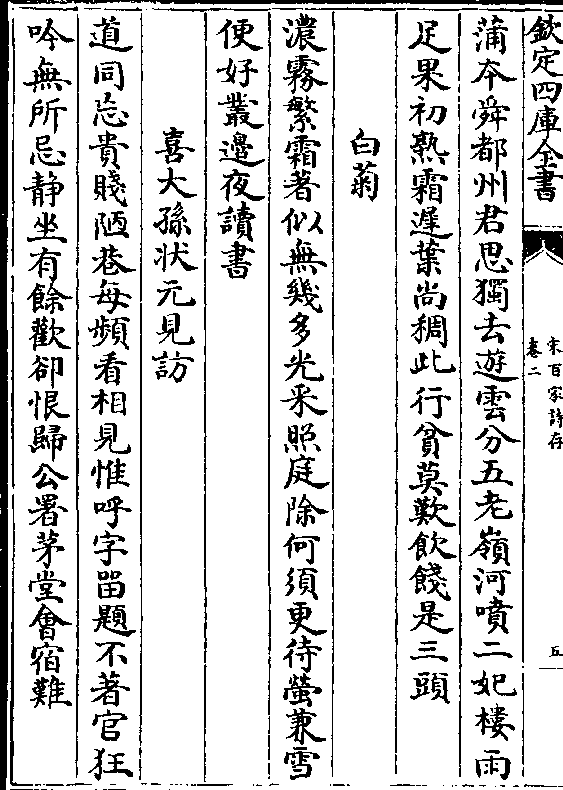 欽定四庫全書
宋百家詩存
卷二
五
蒲夲舜都州君思獨去遊雲分五老嶺河噴二妃樓雨
足果初熟霜遲葉尚稠此行貧莫歎飲餞是三頭
白菊
濃霧繁霜著似無幾多光采照庭除何須更待螢兼雪
便好叢邊夜讀書
喜大孫狀元見訪
道同忘貴賤陋巷每頻看相見惟呼字留題不著官狂
吟無所忌静坐有餘歡卻恨歸公署茅堂會宿難